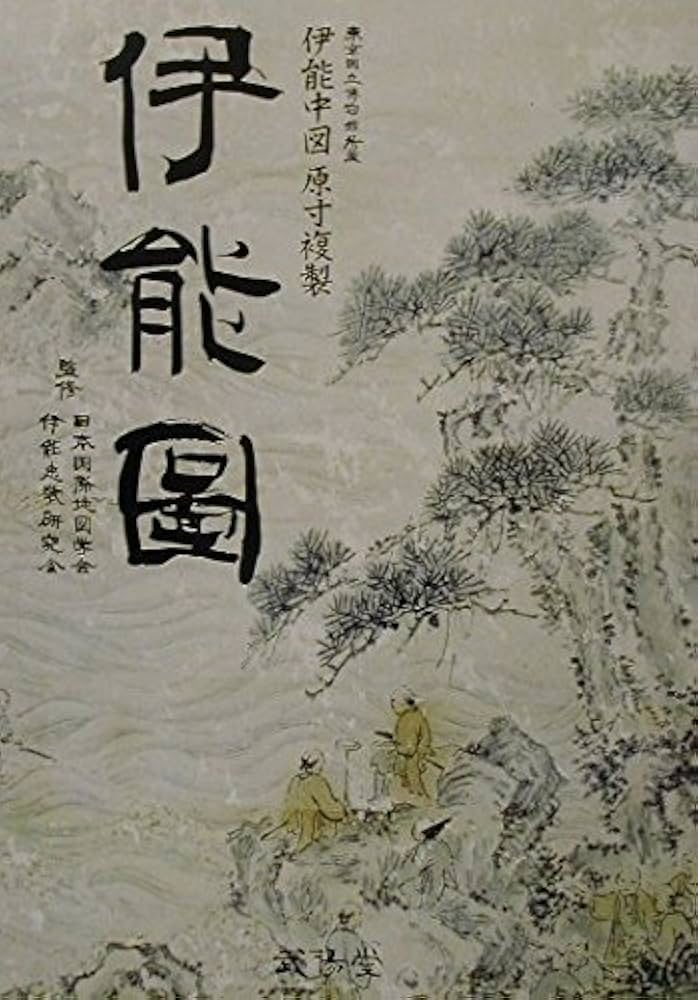 東京国立博物館所蔵
伊能中図 原寸複製
伊能圖
監修
日本国際地図学会
伊能忠敬研究会
武揚堂